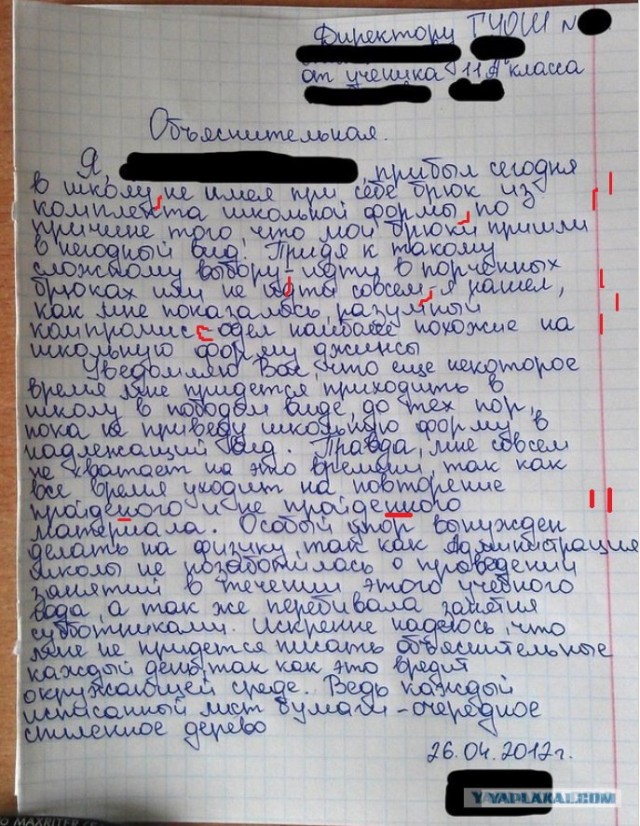 Директору ГУОШ №
от ученика 11 "А" класса
Объяснительная.
Я, , прибыл сегодня
в школу, не имея при себе брюк из
комплекта школьной формы, по
причине того, что мои брюки пришли
в негодный вид. Придя к такому
сложному выбору - идти в порченных
брюках или не идти совсем, я нашел,
как мне показалось, разумный
компромис - одел наиболее похожие на
школьную форму джинсы
Уведомляю Вас, что еще некоторое
время мне придется приходить в
школу в подобом виде, до тех пор,
пока не приведу школьную форму в
надлежащий вид. Правда, мне совсем
не хватает на это времени, так как
все время уходит на повторение
пройденого и не пройденного
материала. Особый упор вынужден
делать на физику, так как Администрация
школы не позаботилась о проведении
занятий в течении этого учебного
года, а так же перебивала занятия
субботниками. Искренне надеюсь, что
мне не придется писать объяснительные
каждый день, так как это вредит
окружающей среде. Ведь каждый
исписанный лист бумаги - очередное
спиленное дерево
26.04.2012г.
YAPLAKAL.COM
MAXRITER